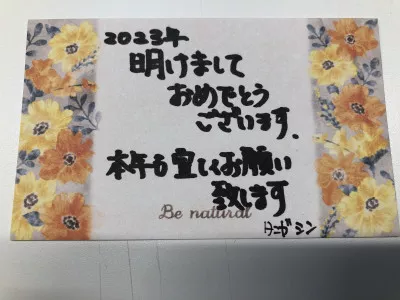 2023年
明けまして
おめでとう
ございます.
本年も宜しくお願い
致します
Be natural